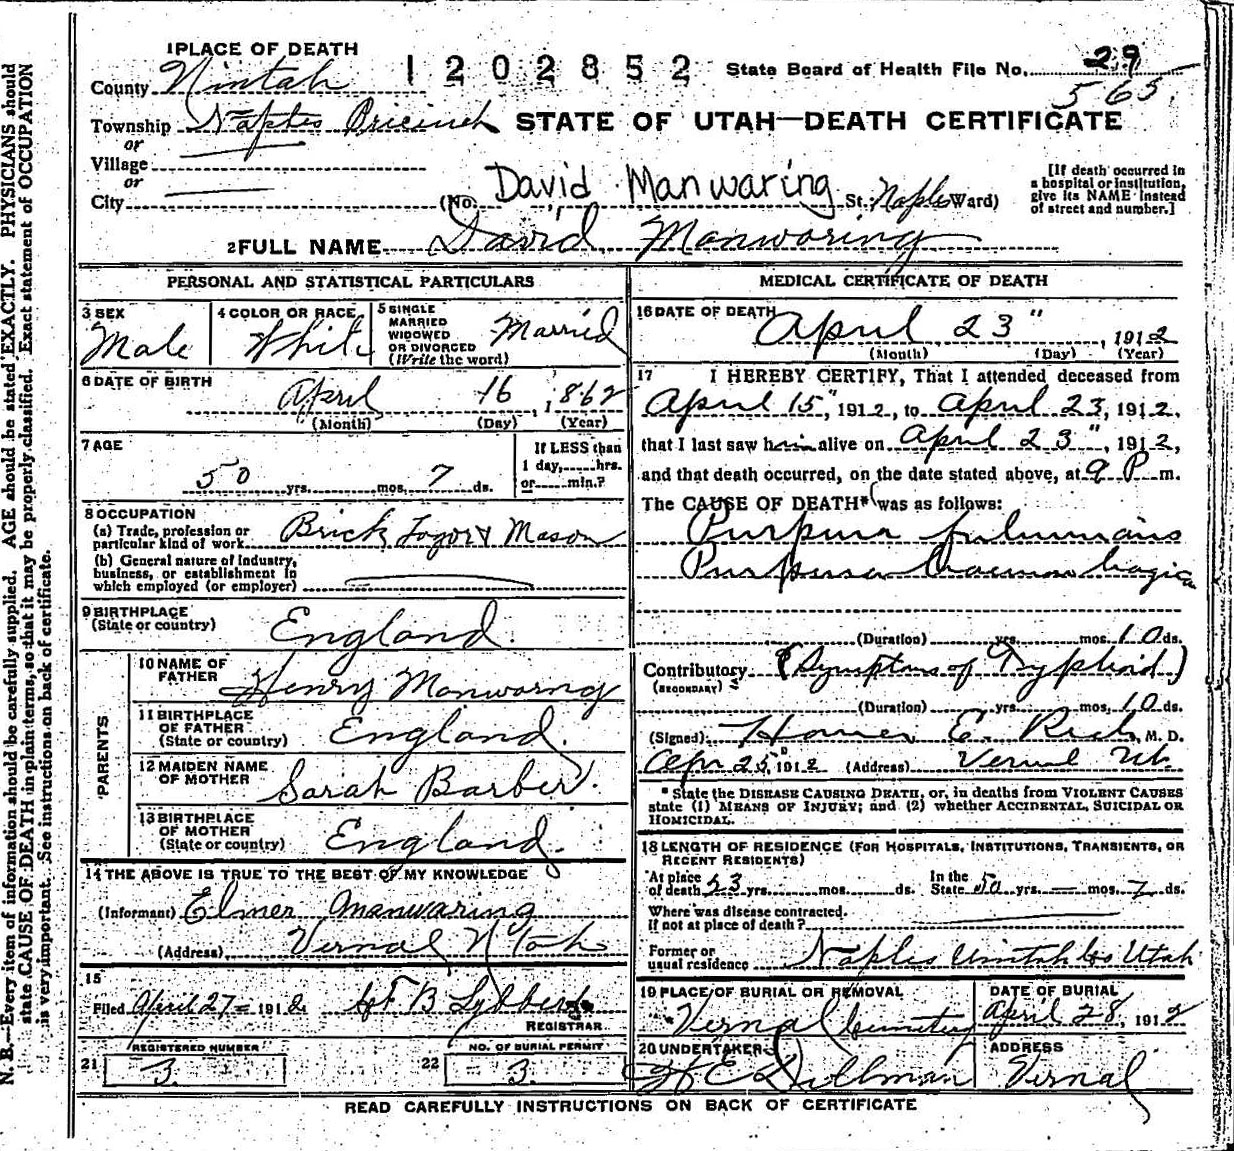 1 PLACE OF DEATH
1202852
State Board of Health File No. 29
565.
County Uintah
Township Naples Pricinct
STATE OF UTAH—DEATH CERTIFICATE
or
Village
or
City
(No. David Manwaring St. Naples Ward)
[If death occurred in a hospital or institution, give its NAME instead of street and number.]
2 FULL NAME David Manwaring
PERSONAL AND STATISTICAL PARTICULARS
3 SEX
Male
4 COLOR OR RACE
White
5 SINGLE MARRIED WIDOWED OR DIVORCED (Write the word)
Married
6 DATE OF BIRTH
April 16, 1862
(Month) (Day) (Year)
7 AGE
50 yrs. mos. 7 ds.
If LESS than 1 day, hrs. or min.?
8 OCCUPATION
(a) Trade, profession or particular kind of work Brick Layor & Mason
(b) General nature of industry, business, or establishment in which employed (or employer)
9 BIRTHPLACE
(State or country) England.
PARENTS
10 NAME OF FATHER Henry Manwarng
11 BIRTHPLACE OF FATHER (State or country) England.
12 MAIDEN NAME OF MOTHER Sarah Barber.
13 BIRTHPLACE OF MOTHER (State or country) England.
14 THE ABOVE IS TRUE TO THE BEST OF MY KNOWLEDGE
(Informant) Elmer Manwaring
(Address) Vernal Utah
15
Filed April 27 1912 B Lybbert
REGISTRAR
REGISTERED NUMBER
21 3.
NO. OF BURIAL PERMIT
22 3.
MEDICAL CERTIFICATE OF DEATH
16 DATE OF DEATH
April 23", 1912
(Month) (Day) (Year)
17 I HEREBY CERTIFY, That I attended deceased from
April 15", 1912, to April 23, 1912,
that I last saw him alive on April 23", 1912,
and that death occurred, on the date stated above, at 9 P. m.
The CAUSE OF DEATH* was as follows:
Purpura fulminans
Purpura Haemorrhagica
(Duration) yrs. mos. 10 ds.
Contributory (Symptoms of Typhoid)
(SECONDARY)
(Duration) yrs. mos. 10 ds.
(Signed) Homer E. Rich, M. D.
Apr 25, 1912 (Address) Vernal Ut.
* State the DISEASE CAUSING DEATH, or, in deaths from VIOLENT CAUSES
state (1) MEANS OF INJURY; and (2) whether ACCIDENTAL, SUICIDAL OR
HOMICIDAL.
18 LENGTH OF RESIDENCE (FOR HOSPITALS, INSTITUTIONS, TRANSIENTS, OR
RECENT RESIDENTS)
At place of death 23 yrs. mos. ds. In the State 50 yrs. — mos. 7 ds.
Where was disease contracted.
If not at place of death?
Former or usual residence Naples Uintah Co Utah
19 PLACE OF BURIAL OR REMOVAL
Vernal Cemetery
DATE OF BURIAL
April 28, 1912
20 UNDERTAKER
Dillman
ADDRESS
Vernal
READ CAREFULLY INSTRUCTIONS ON BACK OF CERTIFICATE
N. B.—Every item of information should be carefully supplied. AGE should be stated EXACTLY. PHYSICIANS should
state CAUSE OF DEATH in plain terms, so that it may be properly classified. Exact statement of OCCUPATION
is very important. See instructions on back of certificate.